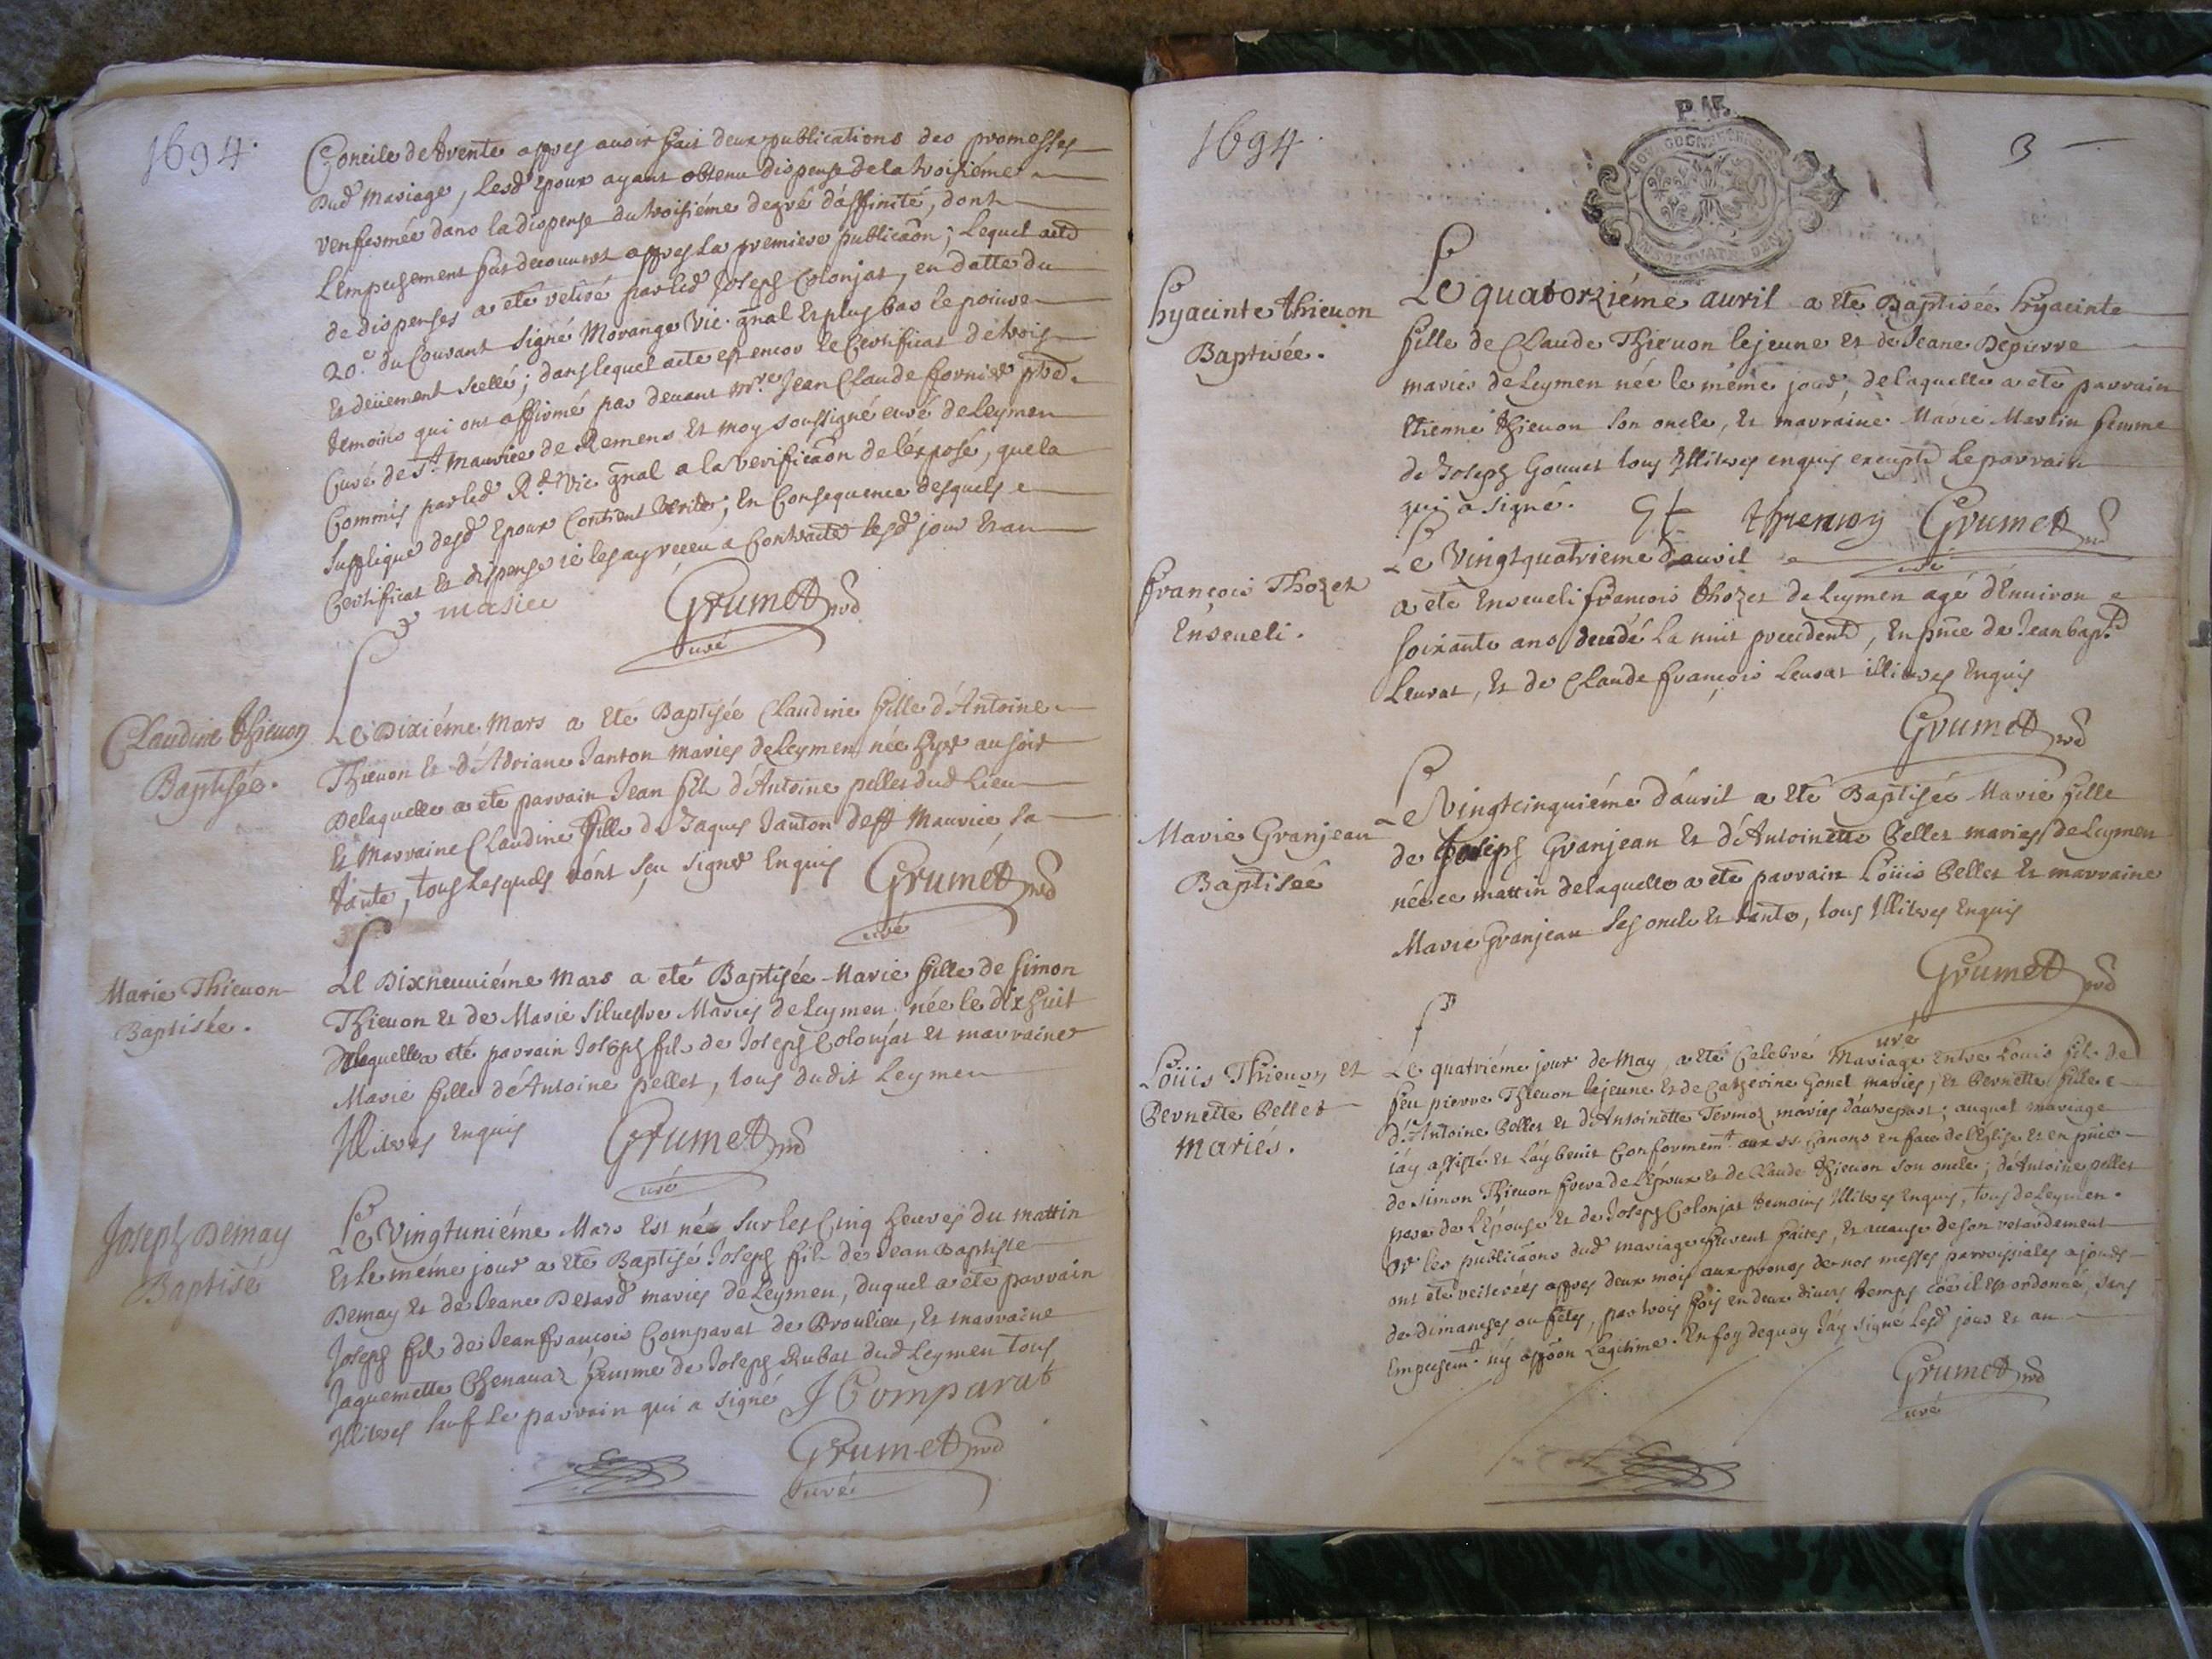 1694.
Concile de Trente apres avoir fait deux publications des promesses
dud mariage, lesd Epoux ayant obtenu dispense de la troisiéme
renfermée dans la dispense du troisiéme degré d'affinité, dont
l'empechement fut decouvert apres la premiere publicaon; lequel acte
de dispenses a eté retiré par led Joseph Colonjat, en datte du
20.e du Courant signé Morange Vic. gnal et plus bas
et deüement scellé; dans lequel acte est encor le Certificat de trois
temoins qui ont affirmé par devant Mre Jean Claude fornier pbre.
Curé de St. Maurice de Remens et moy soussigné curé de Leymen
Commis par led Rd. Vic gnal a la verificaon de l'exposé, que la
supplique desd Epoux Contient Verité; En Consequence desquels
Certificat et dispense ie les ay receu a Contracter lesd jour et an
Grumet
curé
Claudine Thieuon
Baptisée.
Le Dixiéme Mars a eté Baptisée Claudine fille d'Antoine
Thieuon et d'Adriane Janton mariés de Leymen née hyer au soir
de laquelle a eté parrain Jean fils d'Antoine pellet dud Lieu
et Marraine Claudine fille de Jaques Janton de St Maurice sa
tante, tous lesquels n'ont sçu signer Enquis Grumet
curé
Marie Thieuon
Baptisée.
Le Dixneuuiéme Mars a eté Baptisée Marie fille de simon
Thieuon et de Marie Siluestre Mariés de Leymen, née le dix huit
de laquelle a eté parrain Joseph fils de Joseph Colonjat et marraine
Marie fille d'Antoine pellet, tous dudit Leymen
Illitrés Enquis Grumet
curé
Joseph Demay
Baptisé
Le Vingtuniéme Mars Est né sur les Cinq heures du mattin
et le même jour a eté Baptisé Joseph fils de Jean Baptiste
Demay et de Jeane mariés de Leymen, duquel a eté parrain
Joseph fils de Jean françois Comparat de Proulieu, et marraine
Jaquemette Chenauaz femme de Joseph Rubat dud Leymen tous
Illitrés sauf le parrain qui a signé J Comparat
Grumet
curé
1694.
P. 1S.
3
hyacinte thieuon
Baptisée.
Le quatorziéme auril a eté Baptisée hyacinte
fille de Claude Thieuon le jeune et de Jeane Depierre
mariés de Leymen née le même jour, de laquelle a eté parrain
Etienne thieuon son oncle, et marraine Marie Martin femme
de Joseph Gonnet tous Illitrés enquis excepté le parrain
qui a signé. Grumet
curé
françois Thozet
Enseueli.
Le Vingtquatrieme d'auril
a eté Enseueli françois thozet de Leymen agé d'Enuiron
soixante ans decedé la nuit precedente, En pnce de Jean bapt.
Leurat, et de Claude françois Leurat illitrés Enquis
Grumet
Marie Granjean
Baptisée
Le Vingtcinquiéme d'auril a eté Baptisée Marie fille
de Joseph Granjean et d'Antoinette Pellet mariés de Leymen
née ce mattin de laquelle a eté parrain Loüis Pellet et marraine
Marie Granjean ses oncle et tante, tous Illitrés Enquis
Grumet
curé
Loüis Thieuon et
Pernette Pellet
Mariés.
Le quatriéme jour de May, a eté Celebré Mariage entre Louis fils de
feu pierre Thieuon le jeune et de Catherine Gonet mariés; et Pernette fille
d'Antoine Pellet et d'Antoinette Termoz mariés d'autrepart; auquel mariage
i'ay assisté et l'ay benit Conformemt. aux SS. Canons en face de l'Eglise et en pnce
de simon Thieuon frere de l'Epoux et de Claude thieuon son oncle; d'Antoine pellet
pere de l'Epouse et de Joseph Colonjat temoins Illitrés Enquis, tous de Leymen.
Or les publicaons dud mariage furent faites, et acause de son retardement
ont eté reiterées apres deux mois aux prones de nos messes parroissiales a jours
de dimanches ou fêtes, par trois fois en deux divers temps coe il est ordonné, sans
Empechemt. ny oppoon Legitime. En foy dequoy j'ay signé lesd jour et an
Grumet
curé